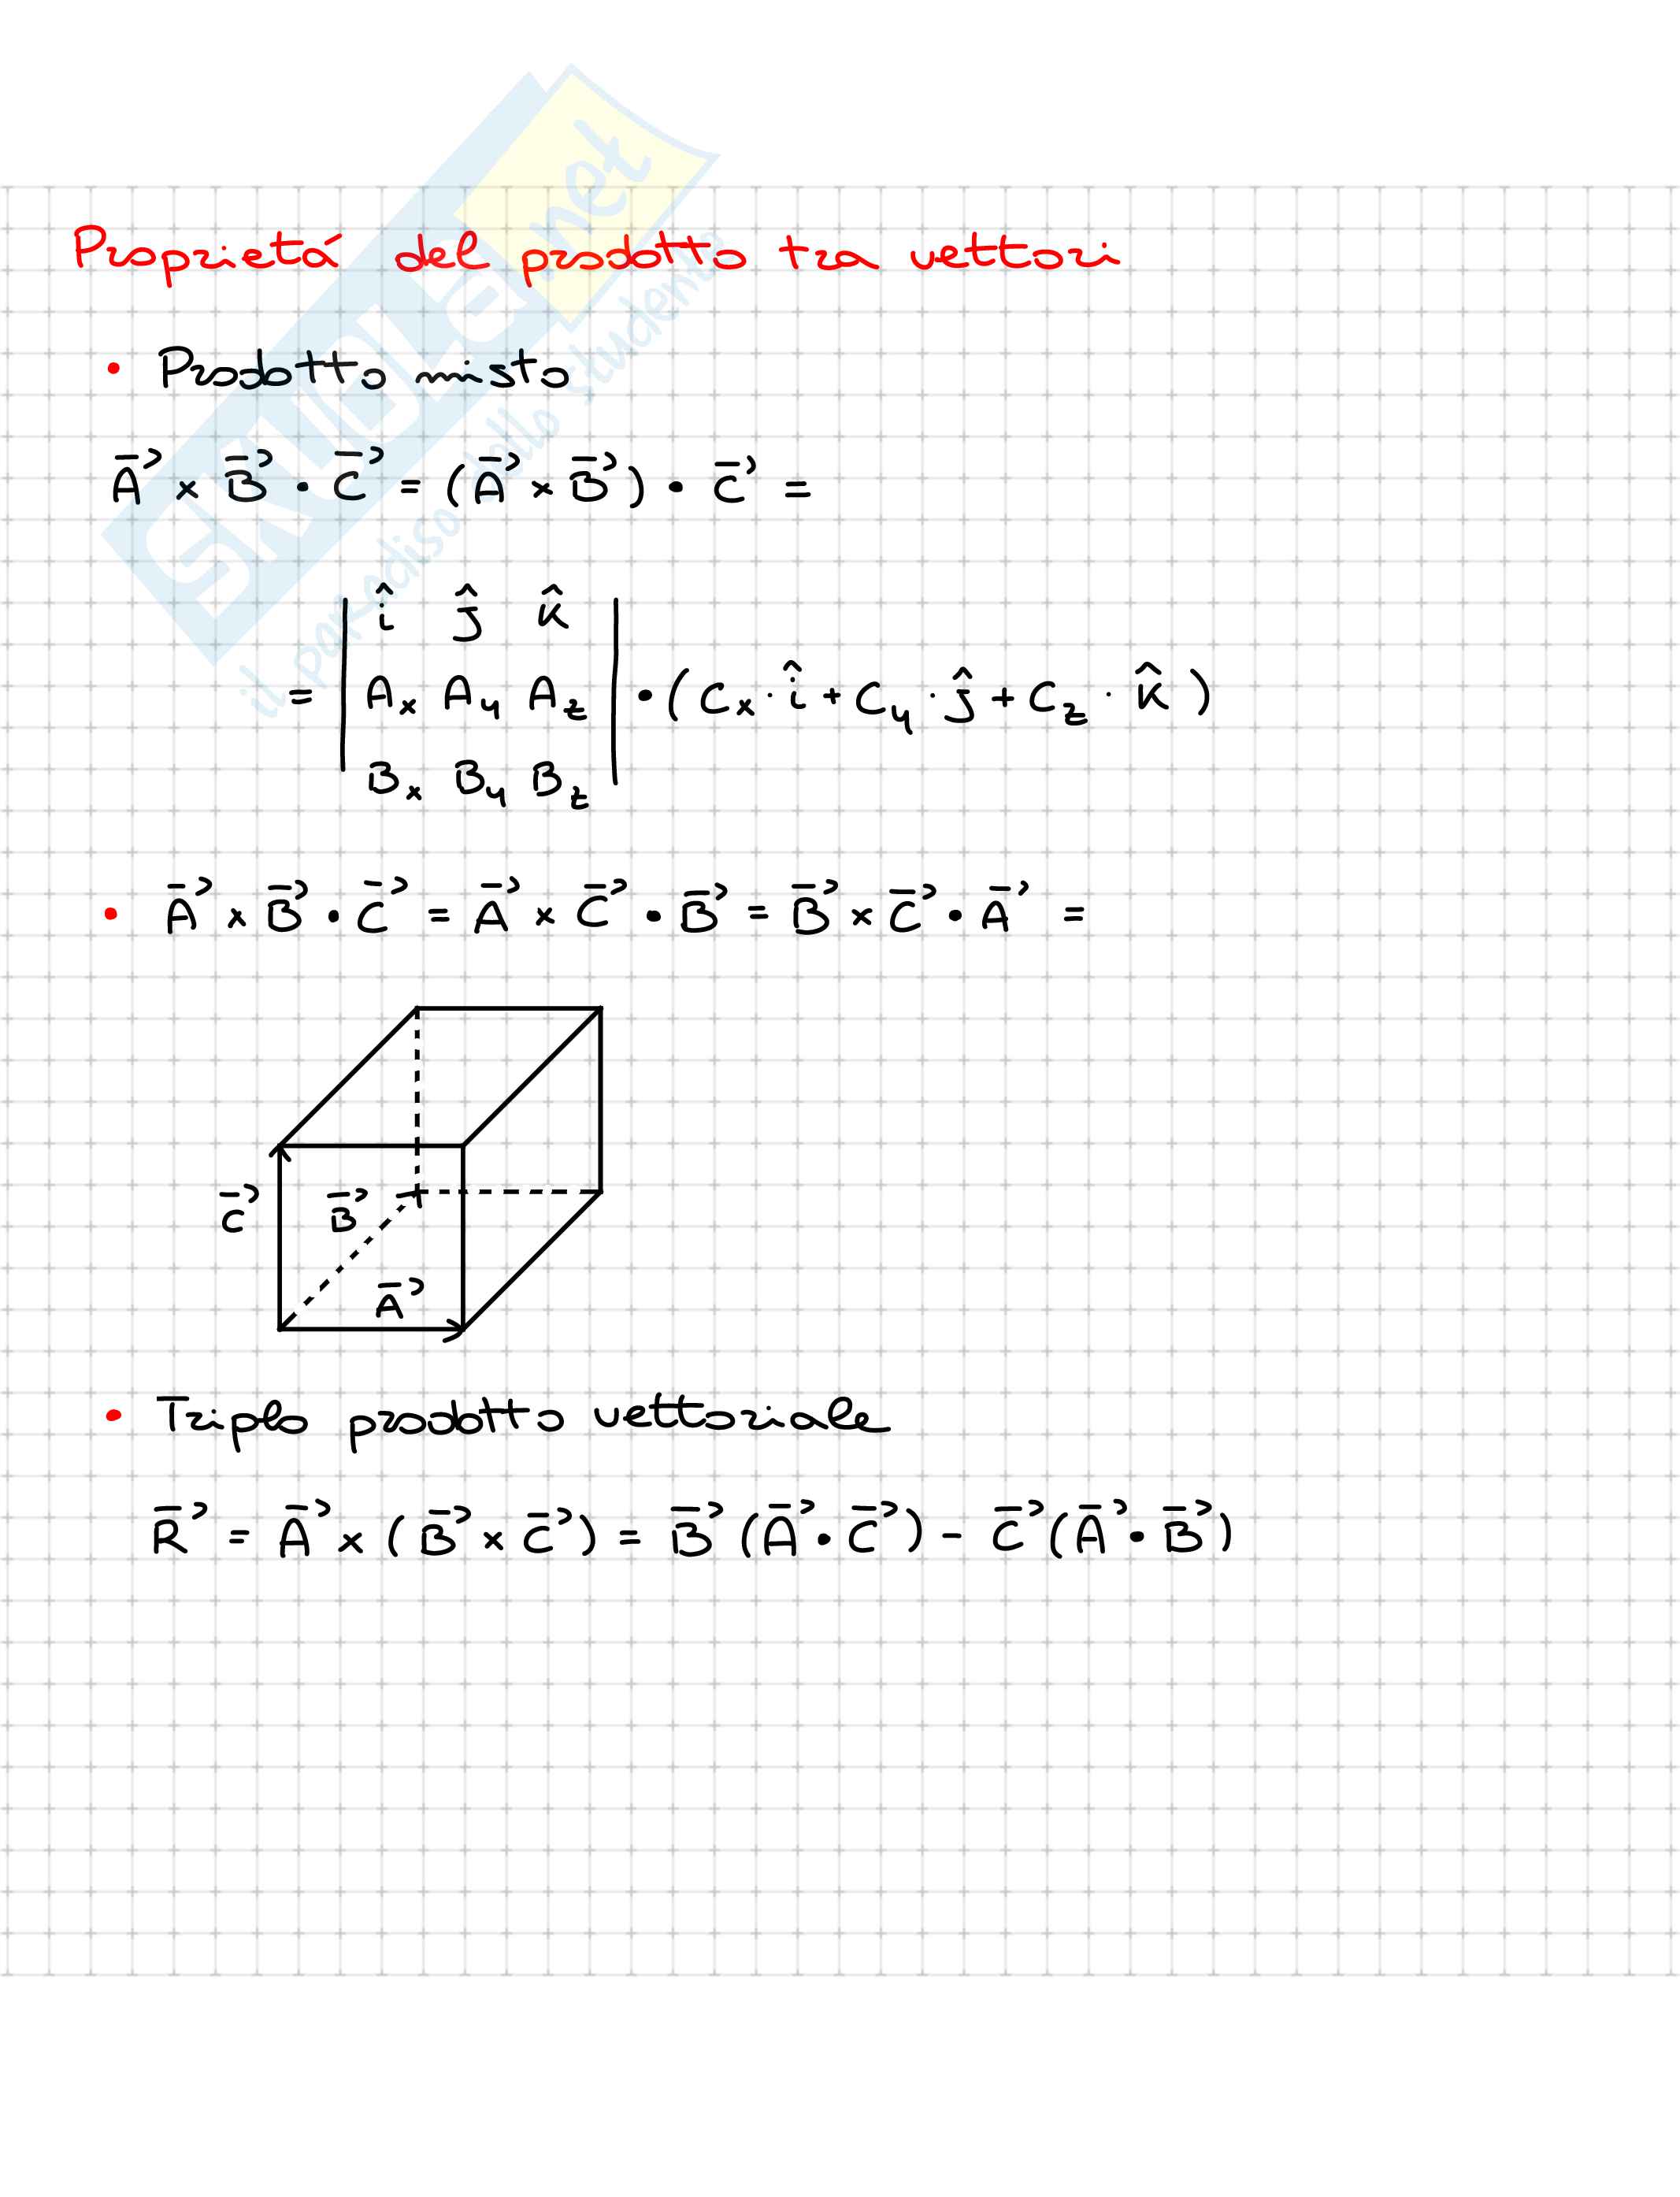 Proprietá del prodotto tra vettori
• Prodotto misto
A⃗ × B⃗ • C⃗ = (A⃗ × B⃗) • C⃗ =
= | î ĵ k̂ |
| Ax Ay Az | • (Cx · î + Cy · ĵ + Cz · k̂)
| Bx By Bz |
• A⃗ × B⃗ • C⃗ = A⃗ × C⃗ • B⃗ = B⃗ × C⃗ • A⃗ =
C⃗
B⃗
A⃗
• Triplo prodotto vettoriale
R⃗ = A⃗ × (B⃗ × C⃗) = B⃗ (A⃗ • C⃗) - C⃗ (A⃗ • B⃗)
SKUOLA.net
il paradiso dello studente